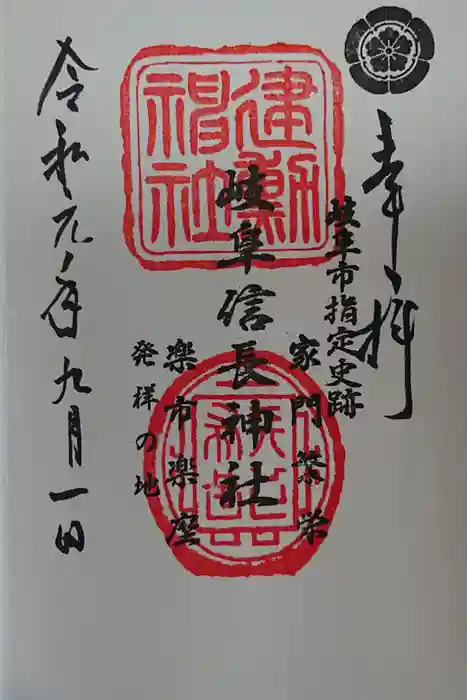 奉拝
岐阜市指定史跡
家門繁栄
岐阜信長神社
建勲神社
楽市楽座
発祥の地
令和元年九月一日